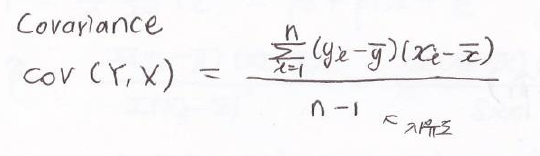 Covariance
cov (Y, X) = \frac{\sum_{i=1}^{n} (y_i - \bar{y})(x_i - \bar{x})}{n-1}